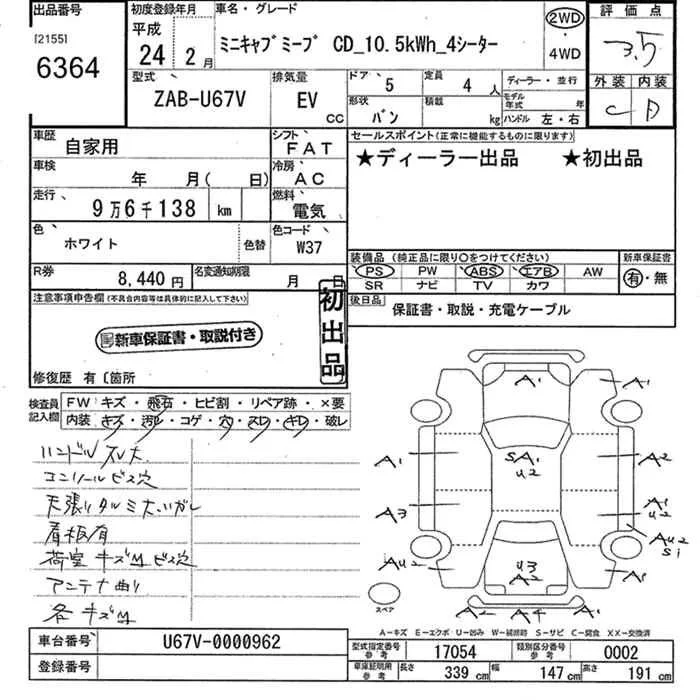 出品番号
[2155]
6364
初度登録年月
平成
24 2月
車名・グレード
ミニキャブミーブ CD_10.5kWh_4シーター
2WD
・
4WD
評価点
3.5
型式
ZAB-U67V
排気量
EV
CC
ドア 5
定員 4 人
形状 バン
積載 kg
ディーラー・並行
モデル年式 年
ハンドル 左・右
外装 内装
C D
車歴 自家用
シフト FAT
車検 年 月( 日)
冷房 AC
走行 9万6千138 km
燃料 電気
色 ホワイト 色替
色コード W37
R券 8,440円
名変通知期限 月 日
セールスポイント(正常に機能するものに限ります)
★ディーラー出品 ★初出品
装備品 (純正品に限り○をつけてください)
PS PW ABS エアB AW
SR ナビ TV カワ
新車保証書
有・無
後日品 保証書・取説・充電ケーブル
注意事項申告欄(不具合内容等は具体的に記入して下さい)
新車保証書・取説付き
初出品
修復歴 有〔箇所
検査員記入欄
FW キズ・飛石・ヒビ割・リペア跡・×要
内装 キズ・汚レ・コゲ・穴・スレ・キレ・破レ
ハンドルスレ大
コンソールビス穴
天張りタルミ大、ハガレ
看板有
荷室キズMビス穴
アンテナ曲り
各キズM
A1
A1
A1
SA1
U2
A2
A3
A1
U2
AU2
AU2
Si
U3
A2
A1
A2 A4 A1
スペア
A-キズ E-エクボ U-凹み W-補修跡 S-サビ C-腐食 XX-交換済
車台番号 U67V-0000962
登録番号
型式指定番号 参考 17054
類別区分番号 参考 0002
車庫証明用 参考 長さ 339 cm 幅 147 cm 高さ 191 cm